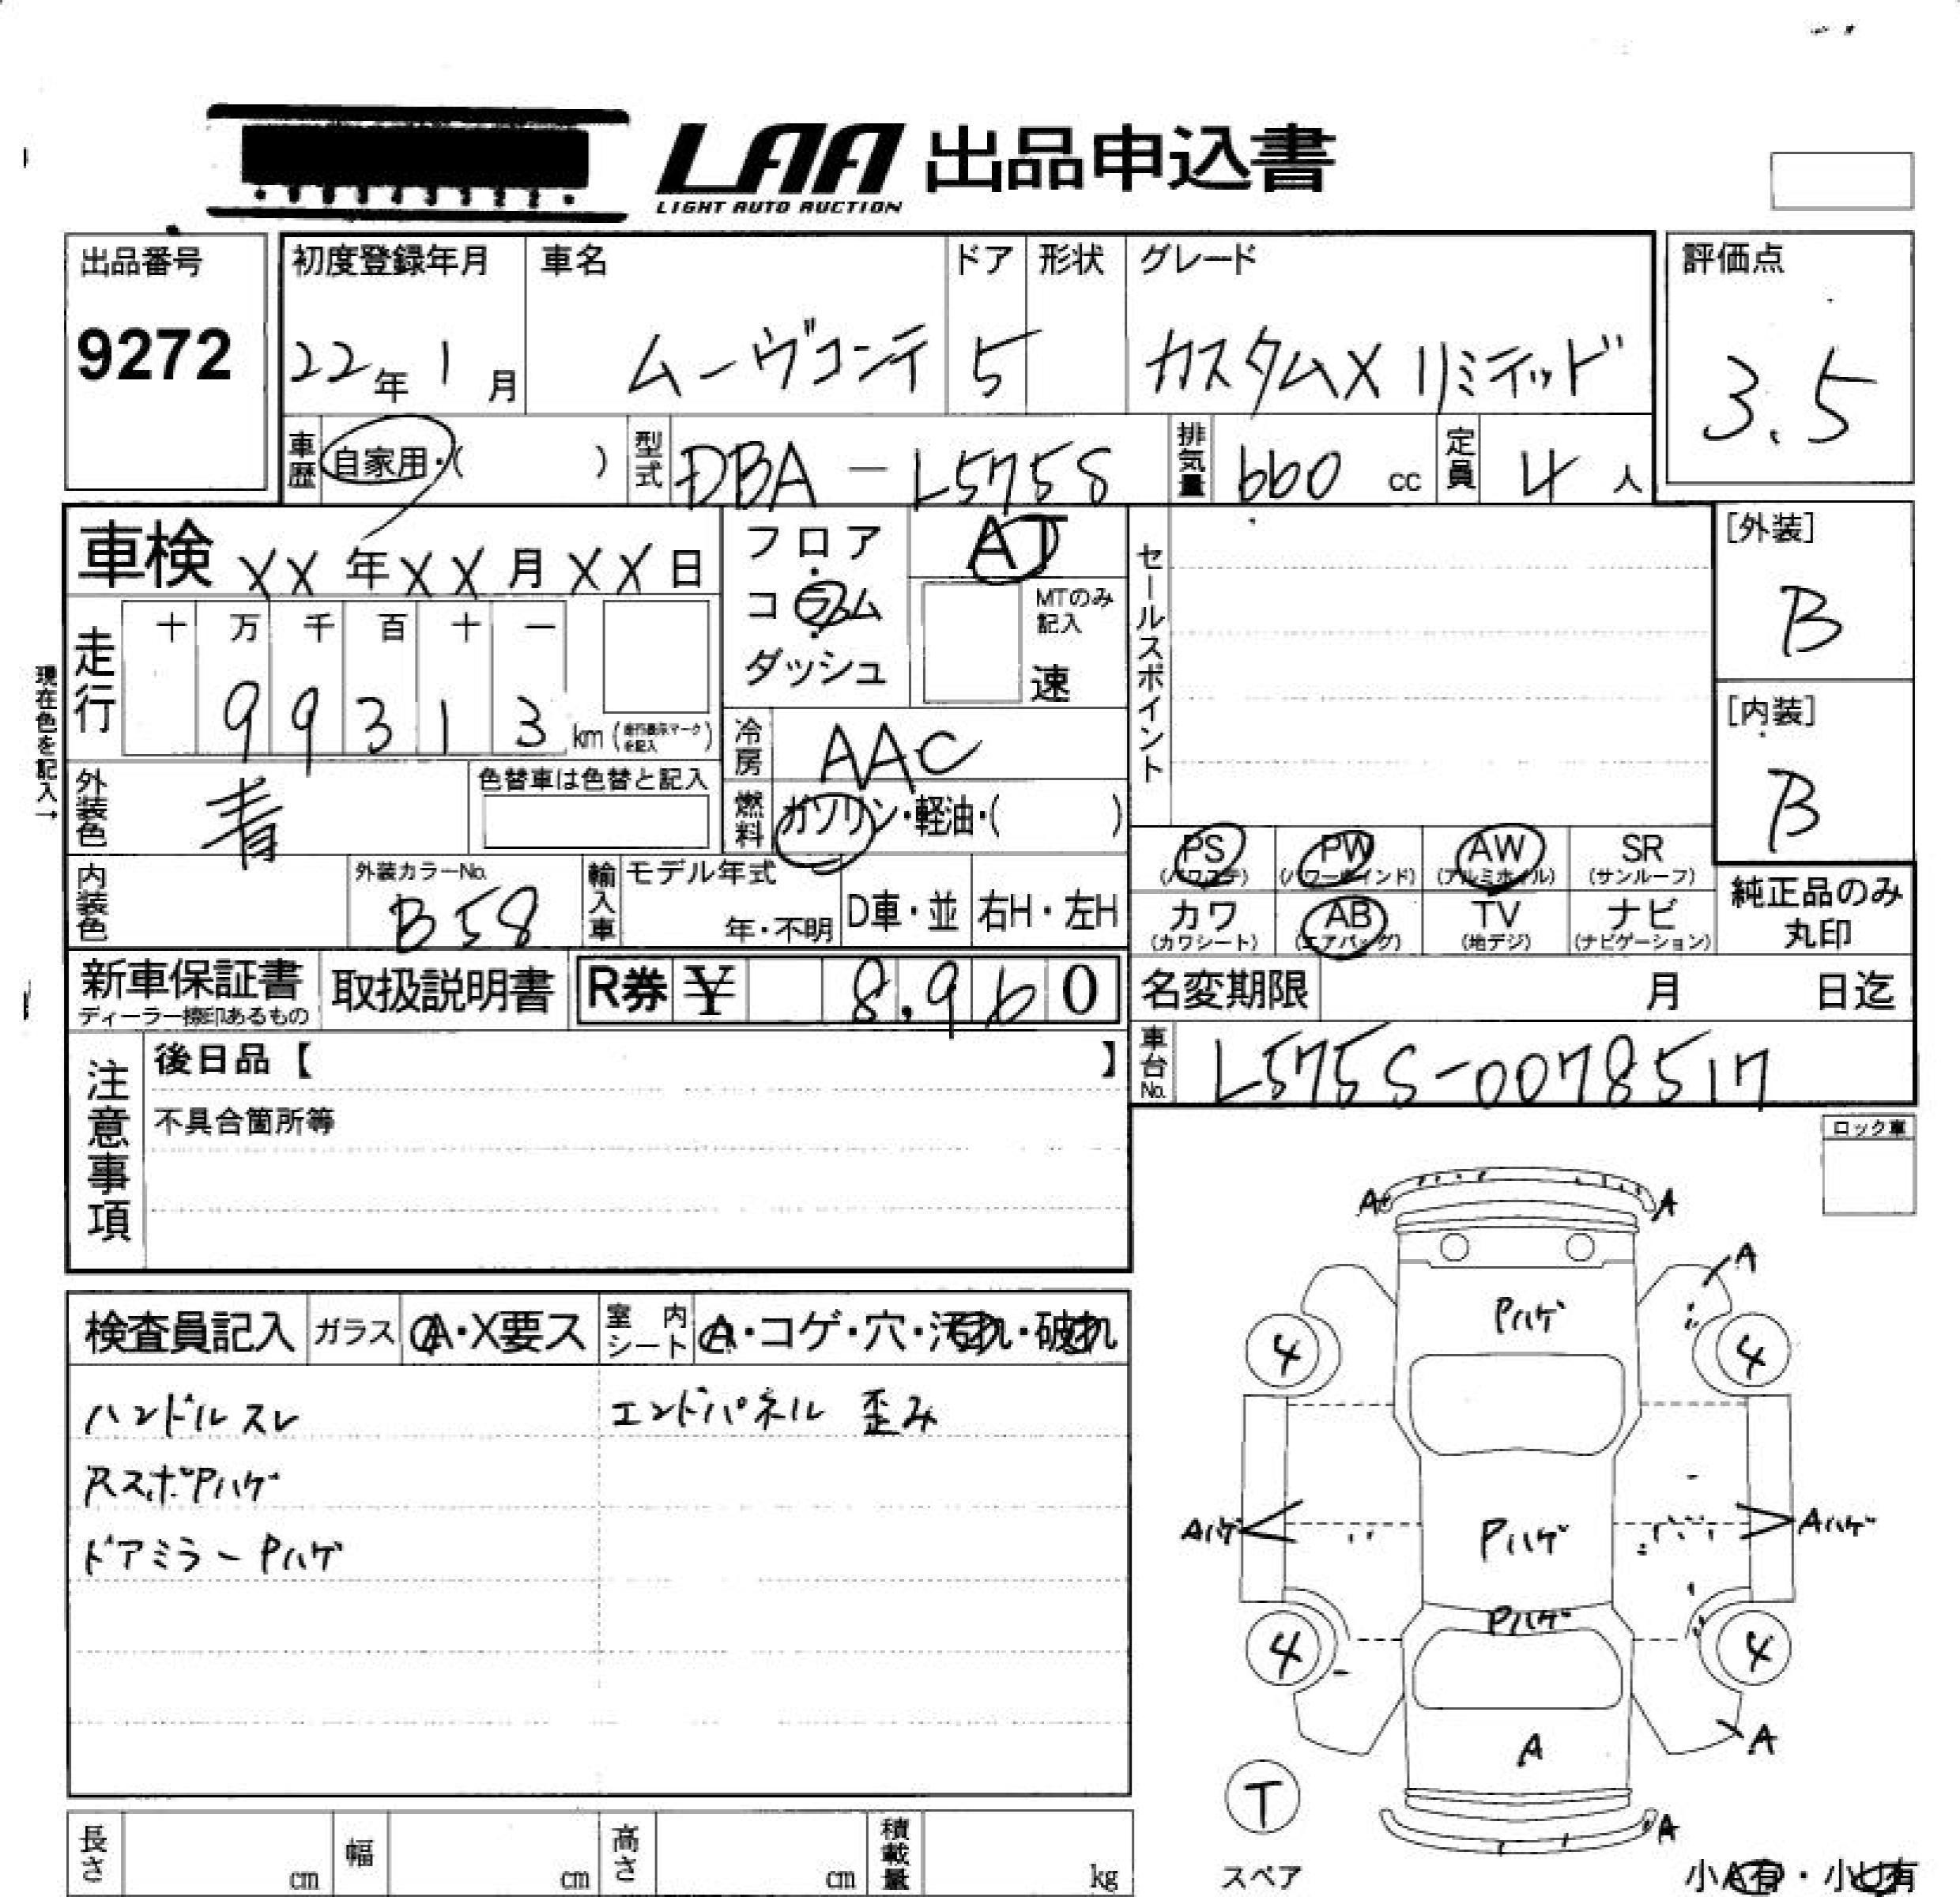 LAA 出品申込書
LIGHT AUTO AUCTION
出品番号
9272
初度登録年月
22年 1月
車名
ムーヴコンテ
ドア
5
形状
グレード
カスタムX リミテッド
評価点
3.5
車歴
自家用・( )
型式
DBA-L575S
排気量
660 cc
定員
4 人
車検 XX年XX月XX日
フロア
・
コラム
・
ダッシュ
AT
MTのみ
記入
速
セールスポイント
[外装]
B
[内装]
B
走行
十 万 千 百 十 一
9 9 3 1 3 km
現在色を記入→
冷房
AAC
外装色
青
色替車は色替と記入
燃料
ガソリン・軽油・( )
PS
(パワステ)
PW
(パワーウインド)
AW
(アルミホイル)
SR
(サンルーフ)
カワ
(カワシート)
AB
(エアバッグ)
TV
(地デジ)
ナビ
(ナビゲーション)
純正品のみ
丸印
内装色
外装カラーNo.
B58
輸入車
モデル年式
年・不明
D車・並
右H・左H
新車保証書
ディーラー捺印あるもの
取扱説明書
R券 ¥ 8,960
名変期限
月 日迄
車台No.
L575S-0078517
注意事項
後日品【 】
不具合箇所等
ロック車
検査員記入
ガラス
A・X要ス
室内シート
A・コゲ・穴・汚れ・破れ
ハンドルスレ
エンドパネル 歪み
RスポPハゲ
ドアミラーPハゲ
A A
A
Pハゲ
4 4
Aハゲ Pハゲ Aハゲ
Pハゲ
4 4
A
A
T
A
スペア
小A有・小凹有
長さ cm
幅 cm
高さ cm
積載量 kg